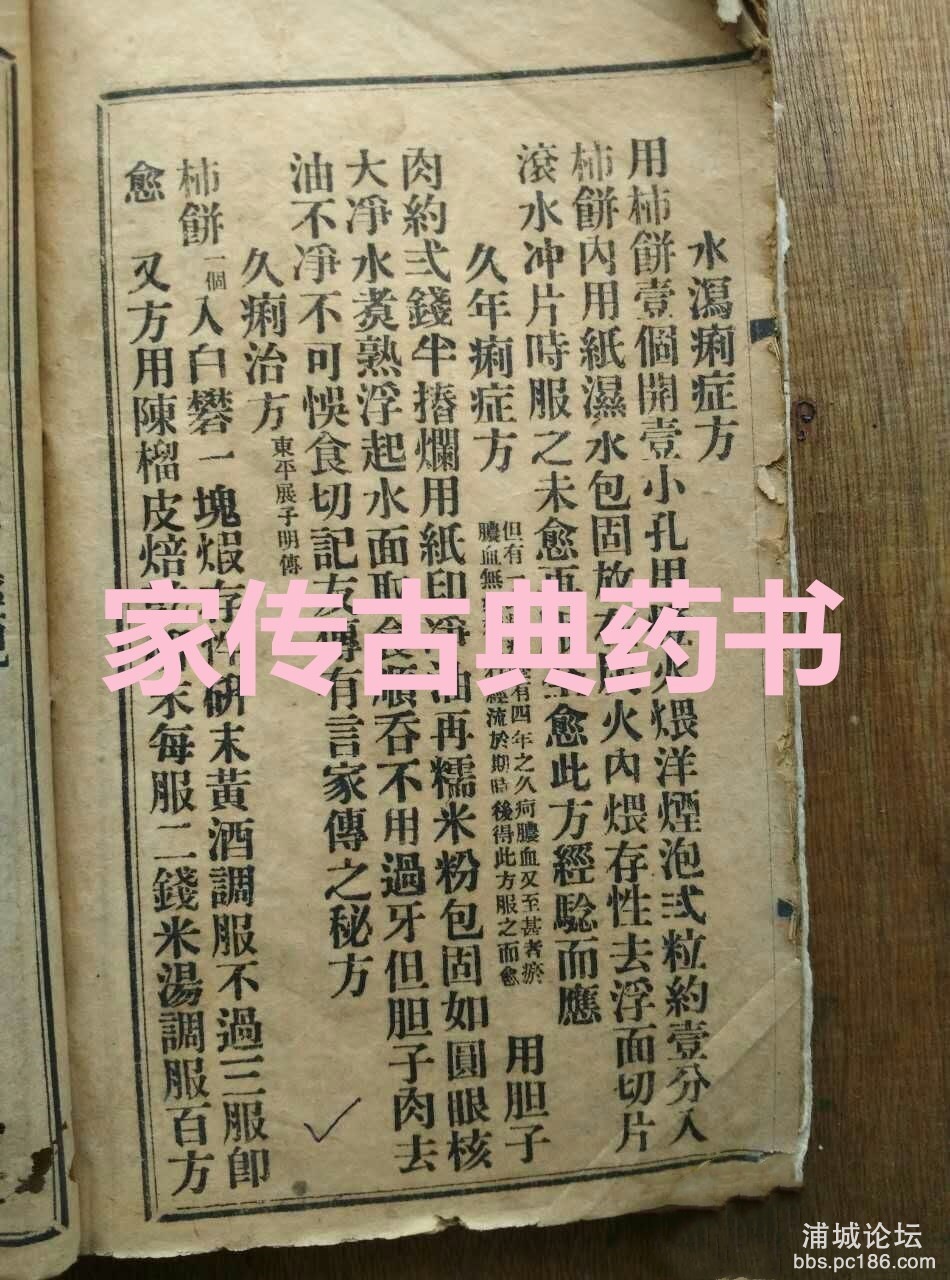 水瀉痢症方
用柿餅壹個開壹小孔用 火煨洋煙泡弍粒約壹分入
柿餅內用紙濕水包固放在 火內煨存性去浮面切片
滾水冲片時服之未愈再 至愈此方經騐而應
久年痢症方 但有一 有四年之久疴膿血又至甚者瘀
膿血無 經流於期時後得此方服之而愈 用胆子
肉約弍錢半摏爛用紙印凈油再糯米粉包固如圓眼核
大凈水煑熟浮起水面取食順吞不用過牙但胆子肉去
油不凈不可悞食切記友傳有言家傳之秘方
久痢治方 東平展子明傳
柿餅一個入白礬一塊煆存性研末黃酒調服不過三服卽
愈 又方用陳榴皮焙 末每服二錢米湯調服百方
家传古典药书
浦城论坛
bbs.pc186.com